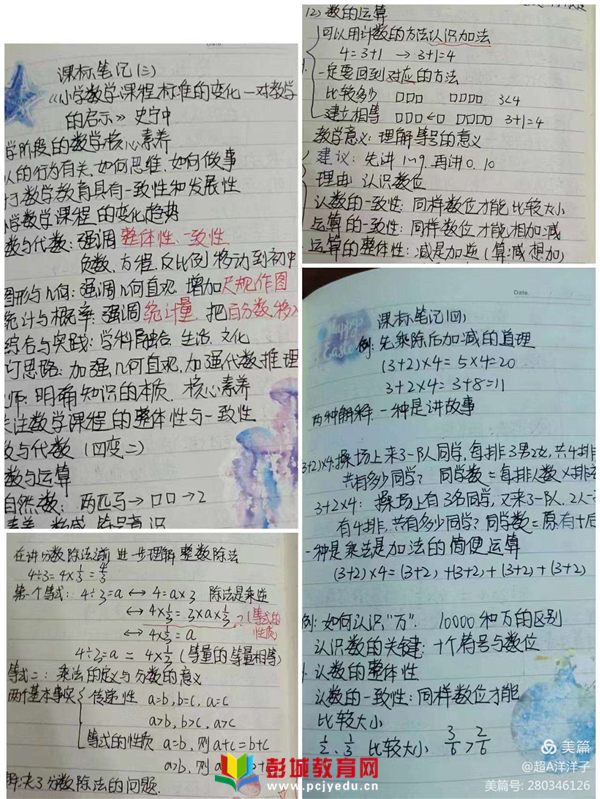 课标笔记(三)
《小学数学课程标准的变化—对教学
的启示》史宁中
学阶段的数学核心素养
人的行为有关、如何思维、如何做事
于数学教育具有一致性和发展性
小学数学课程的变化趋势
数与代数:强调整体性、一致性
负数、方程、反比例移动到初中
图形与几何:强调几何直观,增加尺规作图
统计与概率:强调统计量,把百分数移入
综合与实践:学科融合 生活、文化
订思路:加强几何直观,加强代数推理
师:明确知识的本质、核心素养
关注数学课程的整体性与一致性
数与代数(四变二)
数与运算
自然数:两匹马→□□→2
(2)数的运算
可以用计数的方法认识加法
4=3+1 →3+1=4
一定要回到对应的方法
比较多少 □□□ □□□□ 3<4
建立相等 □□□←□ □□□□ 3+1=4
数学意义:理解等号的意义
建议:先讲1~9,再讲0、10
理由:认识数位
认数的一致性:同样数位才能比较大小
运算的一致性:同样数位才能相加减
运算的整体性:减是加逆(算减想加)
Date.
Happy
课标笔记(四)
例:先乘除后加减的道理
(3+2)×4=5×4=20
3+2×4=3+8=11
两种解释:一种是讲故事
(3+2)×4:操场上来3一队同学,每排3男2女,共4排
共有多少同学?同学数=每排人数×排
3+2×4:操场上有3名同学,又来3一队,2人一
有4排,共有多少同学?同学数=原有+后
一种是乘法是加法的简便运算
(3+2)×4=(3+2)+(3+2)+(3+2)+(3+2)
例:如何认识"万":10000和万的区别
认识数的关键:十个符号与数位
认数的整体性
认数的一致性:同样数位才能
比较大小
1/2、1/3 比较大小 3/6>2/6
在讲分数除法前,进一步理解整数除法
4÷3=4×1/3=4/3
第一个等式:4÷3=a ↔ 4=a×3 除法是乘逆
↔ 4×1/3=3×a×1/3 (等式的性质)
↔ 4×1/3=a
4÷3=a=4×1/3 (等量的等量相等)
等式二:乘法的定义与分数的意义
两个基本事实 传递性 a=b,b=c,a=c
a>b,b>c,a>c
等式的性质 a=b,则a+c=b+c
a>b,则a
解决3分数除法的问题.
彭城教育网
www.pcjyedu.cn
美篇
@超A洋洋子
美篇号: 280346126